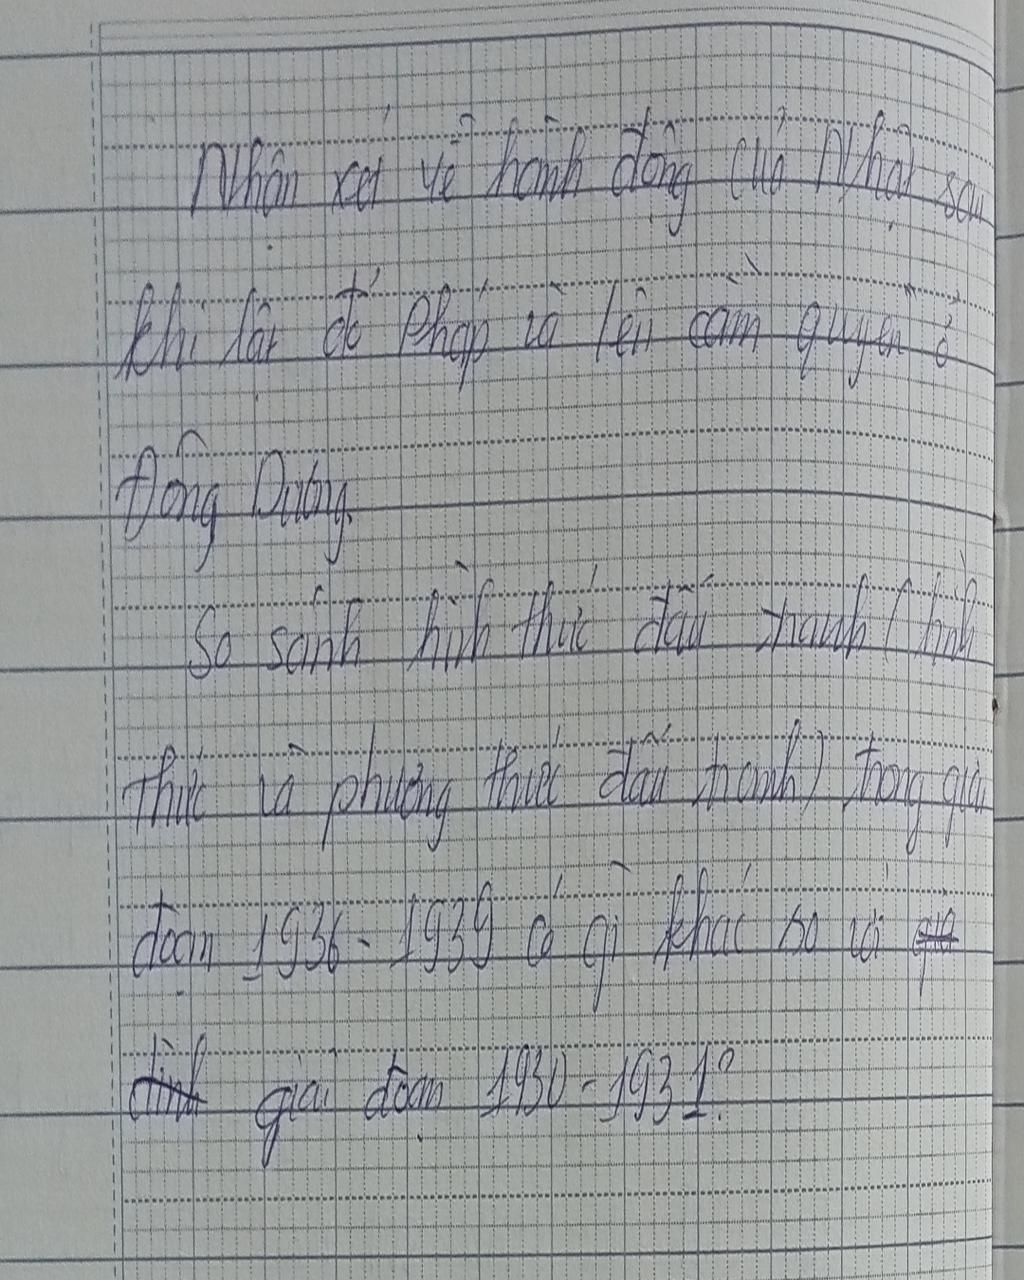 Nhận xét về hành động của Nhật sau
khi lật đổ Pháp và lên cầm quyền ở
Đông Dương.
So sánh hình thức đấu tranh (hình
thức và phương thức đấu tranh) trong giai
đoạn 1936 - 1939 có gì khác so với
giai đoạn 1930 - 1931?